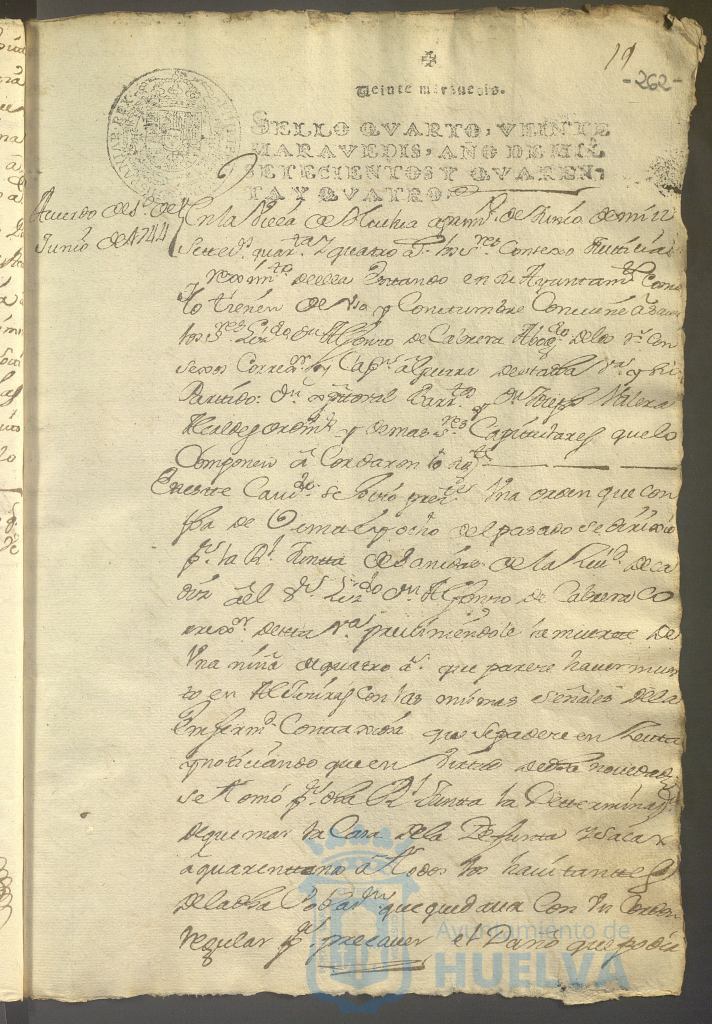 19
-262-
Veinte maravedis.
SELLO QVARTO, VEINTE
MARAVEDIS, AÑO DE MIL
SETECIENTOS Y QVAREN,
TA Y QVATRO.
Acuerdo de 1º de
Junio de 1744
En la Villa de Huelva a prim.º de Junio de mill
Settez.s quar.ta y quatro a.s los S.res Conzexo Justicia
y reximi.to de ella Estando en su Ayuntam.to Como
lo tienen de uso y Constumbre Conviene a saver
los S.res Liz.do Dn Alfonso de Cabrera Abog.do de los R.s Con
sexos Correx.or y Cap.n a Guerra de esta dha V.a y su
Partido: Dn Xptoval y Dn Joseph Valera
Alcaldes ordin.s y demas S.res Capitulares que lo
Componen acordaron lo sig.te
En este Cavi.do se Una orden que con
fha de Veinte y ocho del pasado se dirixio
p.r la R.l Junta de Sanidad de la Ciu.d de Ca
diz al S.r Liz.do Dn Alfonso de Cabrera Co
rrex.or de esta V.a la muerte de
Una niña de quatro a.s que parese haver muer
to en Aljeciras con las mismas señales de la
enferm.d Contaxiosa que se padese en Seuta
y notiziando que en Vista de esta novedad
se tomó p.r dha R.l Junta la Determinaz.on
de quemar la Casa de la Defunta y sacar
a quarentena a todos los havitantes
de la dha que quedava con su Cordon
regular p.a precaver el Daño que podia
Ayuntamiento de
HUELVA